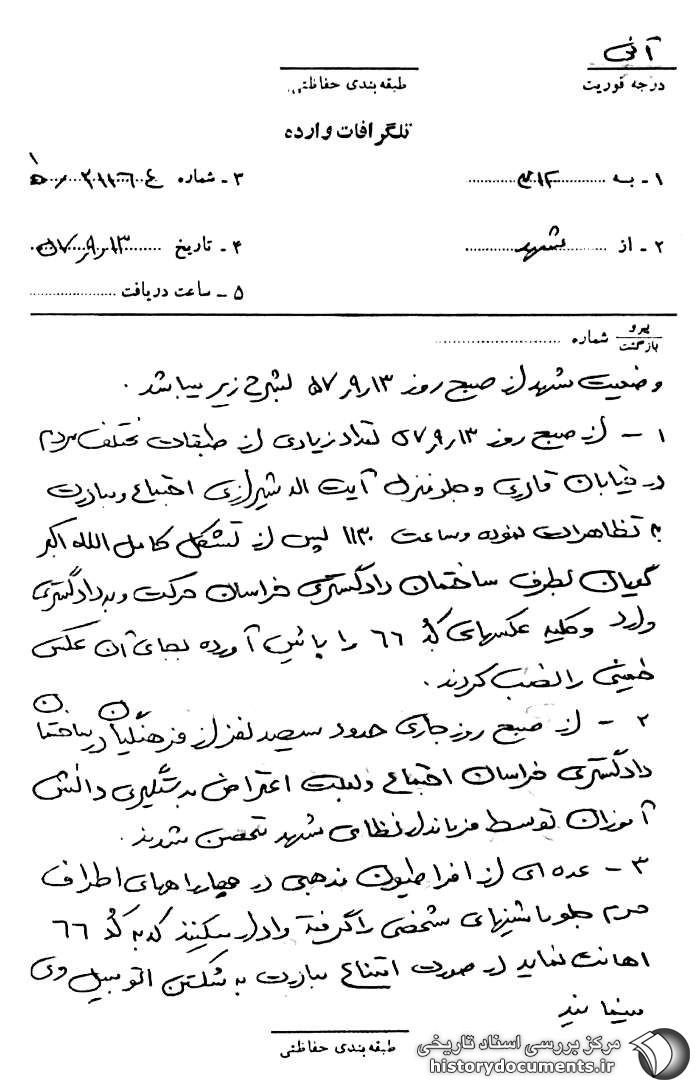 آنی
درجه فوریت
طبقه بندی حفاظتی
تلگرافات وارده
۱ - به ۳۱۲
۳ - شماره
۲ - از مشهد
۴ - تاریخ ۵۷٫۹٫۱۳
۵ - ساعت دریافت
پیرو
بازگشت
شماره
وضعیت مشهد از صبح روز ۵۷٫۹٫۱۳ بشرح زیر میباشد.
۱ - از صبح روز ۵۷٫۹٫۱۳ تعداد زیادی از طبقات مختلف مردم
در خیابان و جلو منزل آیت اله شیرازی اجتماع و مبادرت
به تظاهرات نموده و ساعت ۱۱۳۰ پس از تشکل کامل الله اکبر
گویان بطرف ساختمان دادگستری خراسان حرکت و به دادگستری
وارد و کلیه عکسهای کد ۶۶ را پائین آورده بجای آن عکس
خمینی را نصب کردند.
۲ - از صبح روز جاری حدود سیصد نفر از فرهنگیان در ساختمان
دادگستری خراسان اجتماع و بعلت اعتراض به دستگیری دانش
آموزان توسط فرماندار نظامی مشهد متحصن شدند.
۳ - عده ای از افراطیون مذهبی در چهارراههای اطراف
حرم جلو ماشینهای شخصی را گرفته وادار میکنند که به کد ۶۶
اهانت نماید در صورت امتناع مبادرت به شکستن اتومبیل وی
مینمایند
طبقه بندی حفاظتی
مرکز بررسی اسناد تاریخی
historydocuments.ir